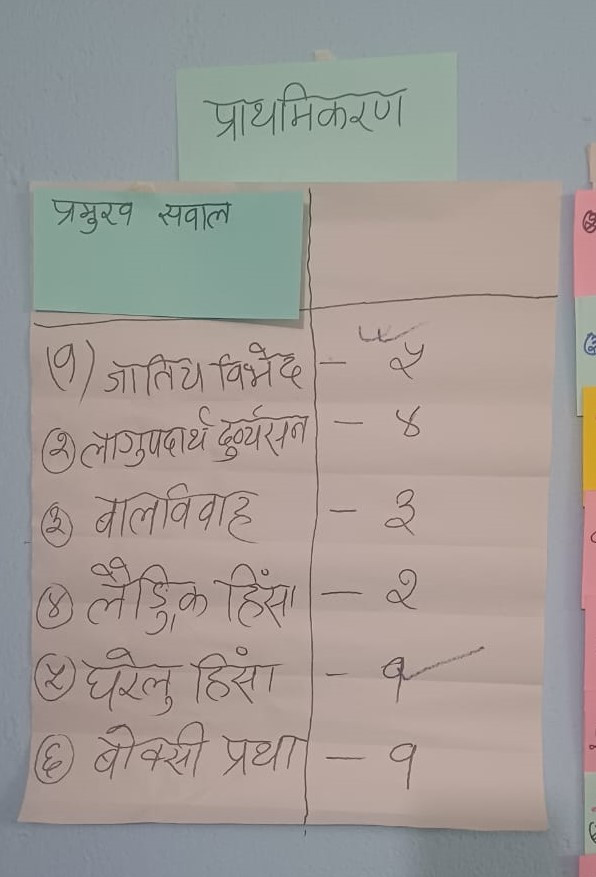 प्राथमिकरण
प्रमुख सवाल
(१) जातिय विभेद - ५
(२) लागुपदार्थ दुर्व्यसन - ४
(३) बालविवाह - ३
(४) लैङ्गिक हिंसा - २
(५) घरेलु हिंसा - १
(६) बोक्सी प्रथा - १